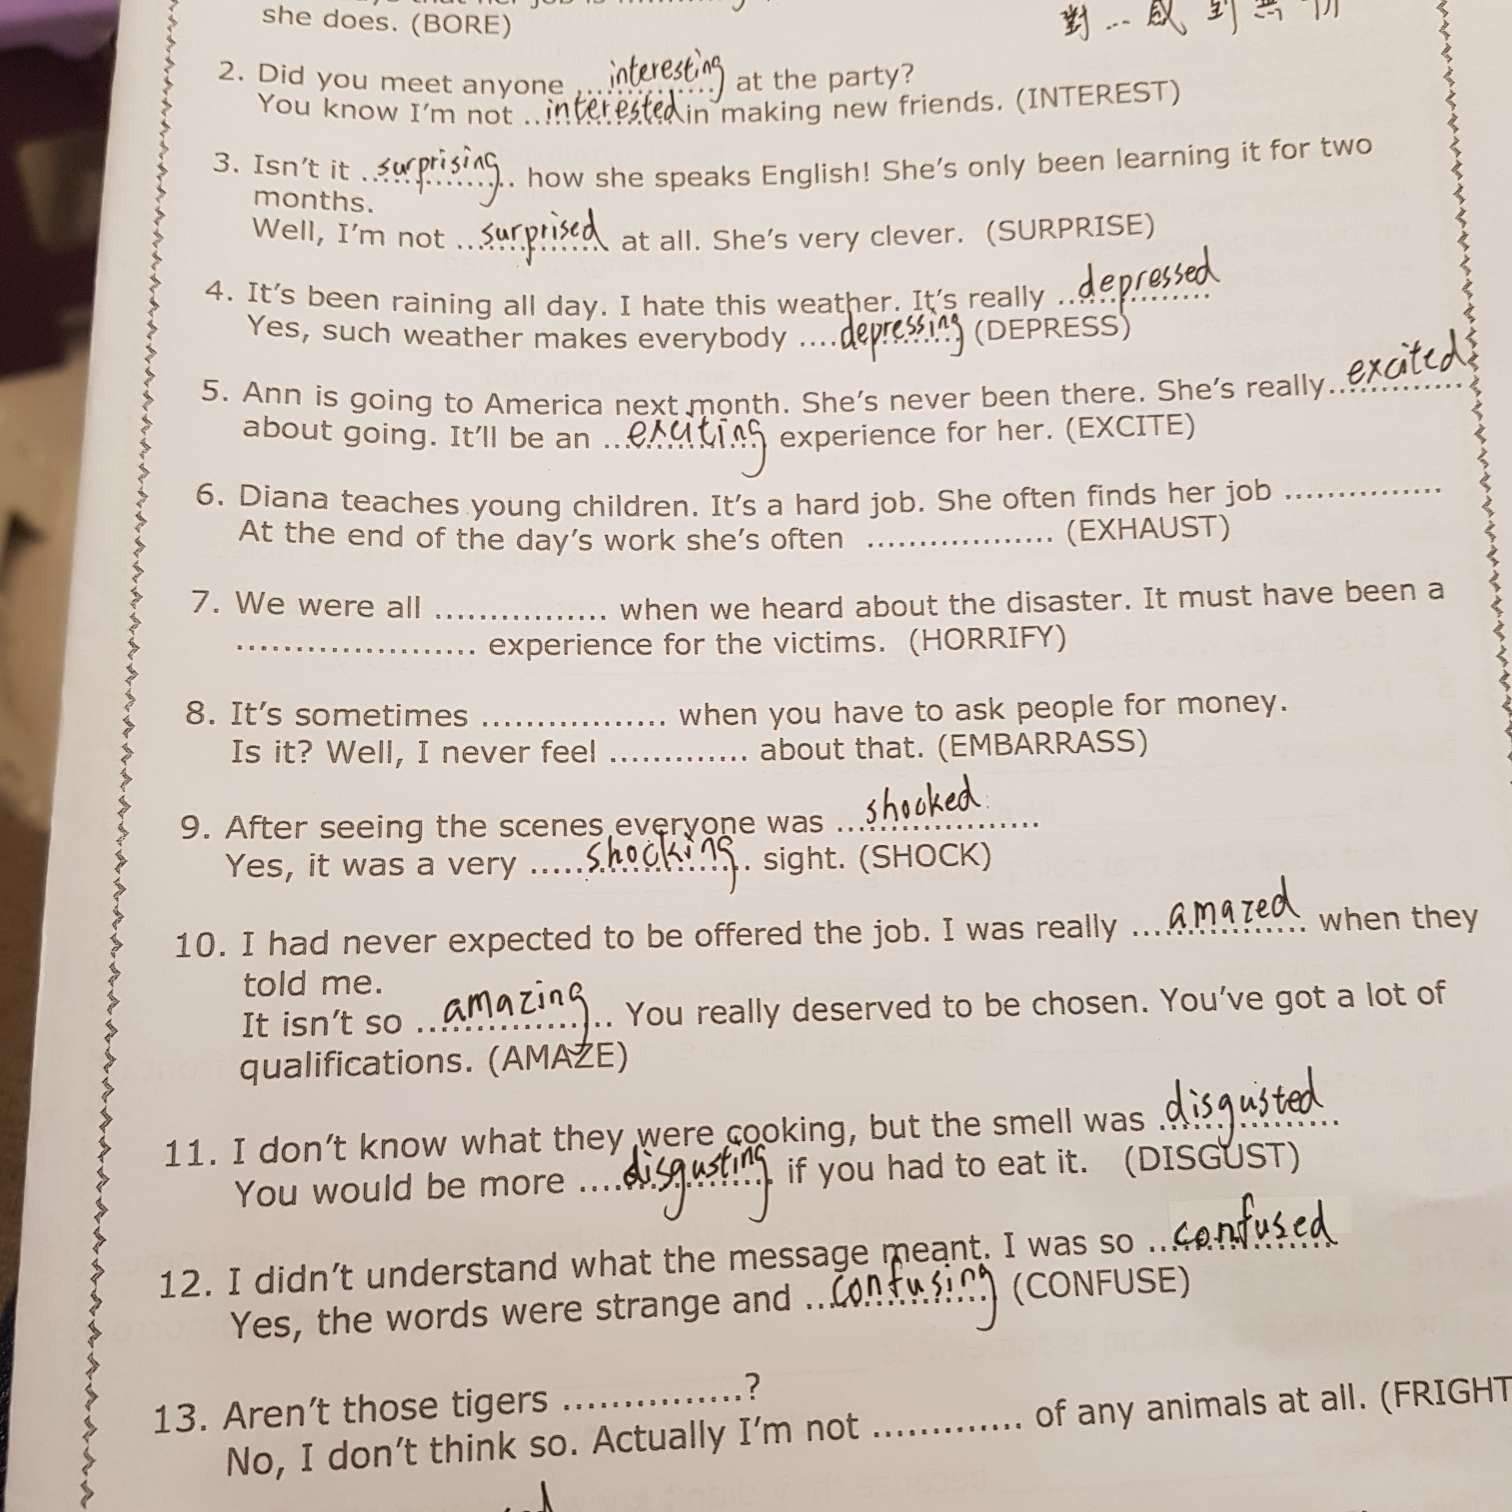 she does. (BORE)
對...感到
2. Did you meet anyone ...interesting... at the party?
You know I'm not ...interested in making new friends. (INTEREST)
3. Isn't it ...surprising... how she speaks English! She's only been learning it for two
months.
Well, I'm not ...surprised at all. She's very clever. (SURPRISE)
4. It's been raining all day. I hate this weather. It's really ...depressed
Yes, such weather makes everybody ....depressing (DEPRESS)
5. Ann is going to America next month. She's never been there. She's really...excited
about going. It'll be an ...exciting experience for her. (EXCITE)
6. Diana teaches young children. It's a hard job. She often finds her job ...............
At the end of the day's work she's often .................. (EXHAUST)
7. We were all ................ when we heard about the disaster. It must have been a
..................... experience for the victims. (HORRIFY)
8. It's sometimes ................. when you have to ask people for money.
Is it? Well, I never feel ............. about that. (EMBARRASS)
9. After seeing the scenes everyone was ...shocked...
Yes, it was a very .....shocking.. sight. (SHOCK)
10. I had never expected to be offered the job. I was really ...amazed when they
told me.
It isn't so ...amazing... You really deserved to be chosen. You've got a lot of
qualifications. (AMAZE)
11. I don't know what they were cooking, but the smell was ...disgusted
You would be more ....disgusting if you had to eat it. (DISGUST)
12. I didn't understand what the message meant. I was so ...confused
Yes, the words were strange and ...confusing (CONFUSE)
13. Aren't those tigers ...............?
No, I don't think so. Actually I'm not ............. of any animals at all. (FRIGHT